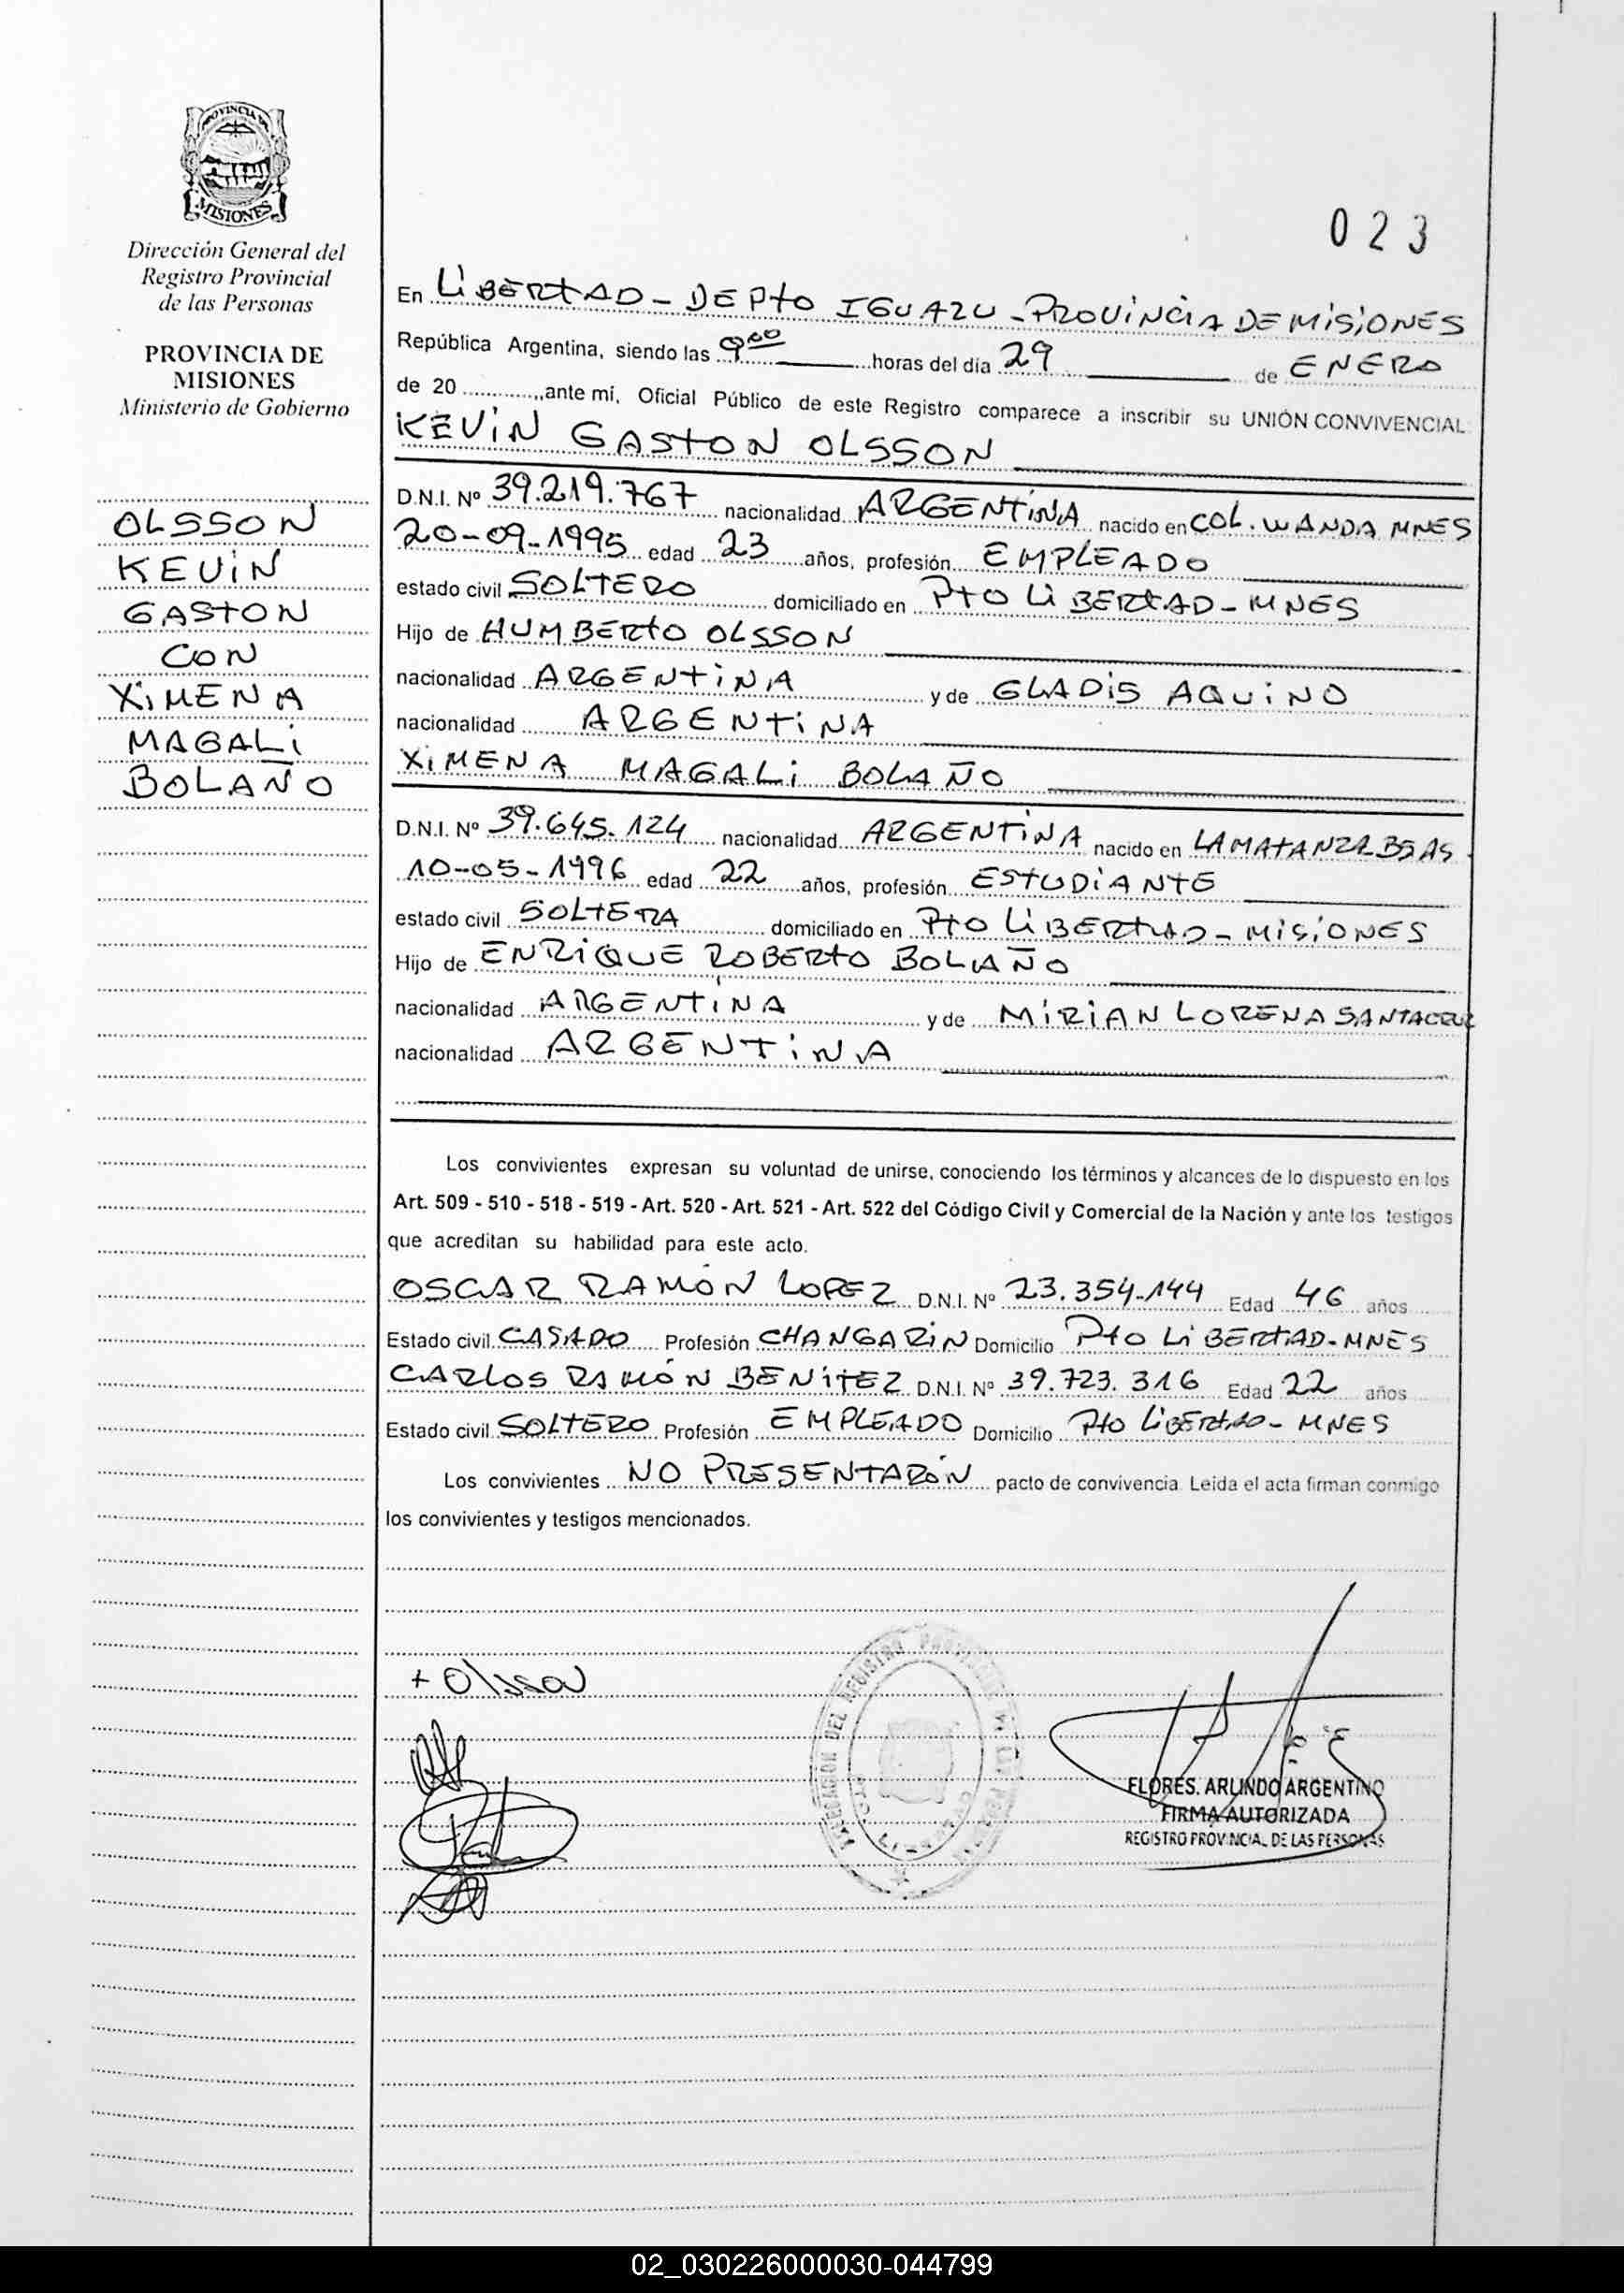 PROVINCIA DE
MISIONES
Dirección General del
Registro Provincial
de las Personas
PROVINCIA DE
MISIONES
Ministerio de Gobierno
OLSSON
KEVIN
GASTON
CON
XIMENA
MAGALI
BOLAÑO
023
En LIBERTAD - DEPTO IGUAZU - PROVINCIA DE MISIONES
República Argentina, siendo las 9:00 horas del día 29 de ENERO
de 20 ............,ante mí, Oficial Público de este Registro comparece a inscribir su UNIÓN CONVIVENCIAL:
KEVIN GASTON OLSSON
D.N.I. Nº 39.219.767 nacionalidad ARGENTINA nacido en COL. WANDA MNES
20-09-1995 edad 23 años, profesión EMPLEADO
estado civil SOLTERO domiciliado en PTO LIBERTAD - MNES
Hijo de HUMBERTO OLSSON
nacionalidad ARGENTINA y de GLADIS AQUINO
nacionalidad ARGENTINA
XIMENA MAGALI BOLAÑO
D.N.I. Nº 39.645.124 nacionalidad ARGENTINA nacido en LA MATANZA BS AS.
10-05-1996 edad 22 años, profesión ESTUDIANTE
estado civil SOLTERA domiciliado en PTO LIBERTAD - MISIONES
Hijo de ENRIQUE ROBERTO BOLAÑO
nacionalidad ARGENTINA y de MIRIAN LORENA SANTACRUZ
nacionalidad ARGENTINA
Los convivientes expresan su voluntad de unirse, conociendo los términos y alcances de lo dispuesto en los
Art. 509 - 510 - 518 - 519 - Art. 520 - Art. 521 - Art. 522 del Código Civil y Comercial de la Nación y ante los testigos
que acreditan su habilidad para este acto.
OSCAR RAMÓN LOPEZ D.N.I. Nº 23.354.144 Edad 46 años
Estado civil CASADO Profesión CHANGARIN Domicilio PTO LIBERTAD - MNES
CARLOS RAMÓN BENITEZ D.N.I. Nº 39.723.316 Edad 22 años
Estado civil SOLTERO Profesión EMPLEADO Domicilio PTO LIBERTAD - MNES
Los convivientes NO PRESENTARÓN pacto de convivencia. Leída el acta firman conmigo
los convivientes y testigos mencionados.
+ Olsson
FLORES. ARLINDO ARGENTINO
FIRMA AUTORIZADA
REGISTRO PROVINCIAL DE LAS PERSONAS
02_030226000030-044799